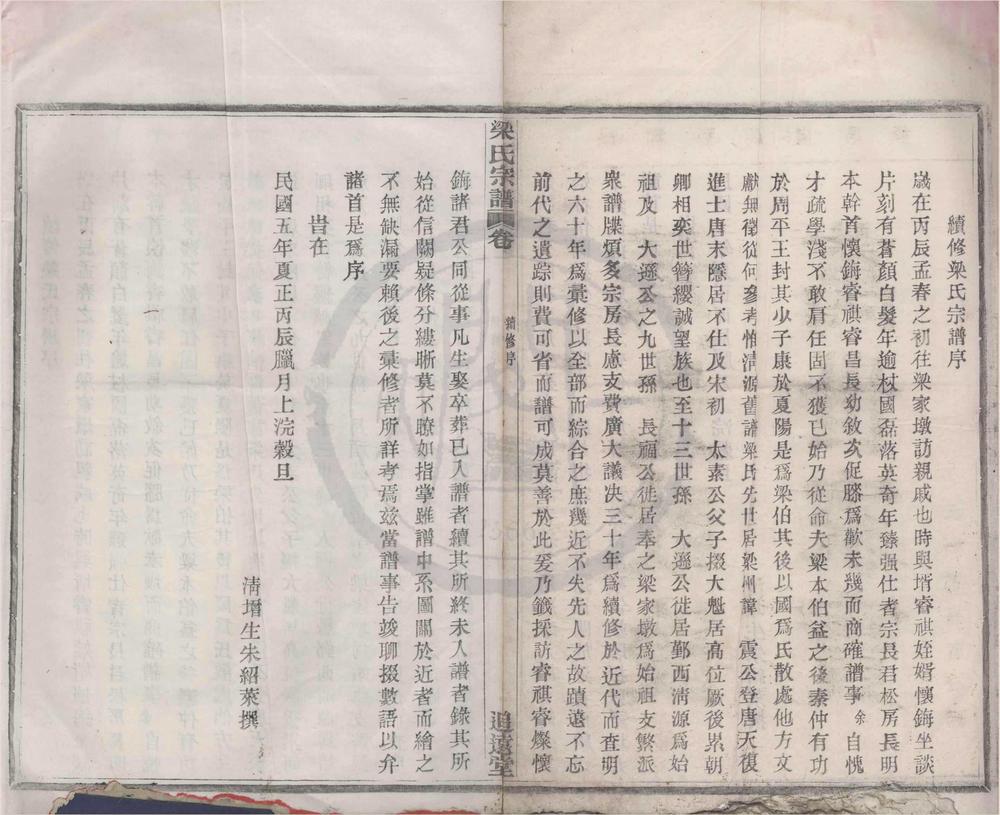 續修梁氏宗譜序
歲在丙辰孟春之初往梁家墩訪親戚也時與壻睿祺姪婿懷鋂坐談
片刻有蒼顏白髮年逾杖國磊落英奇年臻强仕者宗長君松房長明
本幹首懷鋂睿祺睿昌長幼敘次促膝爲歡未幾而商確譜事余自愧
才疏學淺不敢肩任固不獲已始乃從命夫梁本伯益之後秦仲有功
於周平王封其少子康於夏陽是爲梁伯其後以國爲氏散處他方文
獻無徵從何參考惟清源舊譜梁氏先世居梁州諱 震公登唐天復
進士唐末隱居不仕及宋初 太素公父子掇大魁居高位厥後累朝
卿相奕世簪纓誠望族也至十三世孫 大遜公徙居鄞西淸源爲始
祖及 大遜公之九世孫 長福公徙居奉之梁家墩爲始祖支繁派
衆譜牒煩多宗房長慮支費廣大議决三十年爲續修於近代而查明
之六十年爲彙修以全部而綜合之庶幾近不失先人之故蹟遠不忘
前代之遺踪則費可省而譜可成莫善於此爰乃籖採訪睿祺睿燦懷
梁氏宗譜 卷
續修序
追遠堂
鋂諸君公同從事凡生娶卒葬已入譜者續其所終未入譜者錄其所
始從信闕疑條分縷晰莫不瞭如指掌雖譜中系圖關於近者而繪之
不無缺漏要賴後之彙修者所詳考焉玆當譜事告竣聊掇數語以弁
諸首是爲序
旹在
民國五年夏正丙辰臘月上浣穀旦
清壻生朱紹萊撰